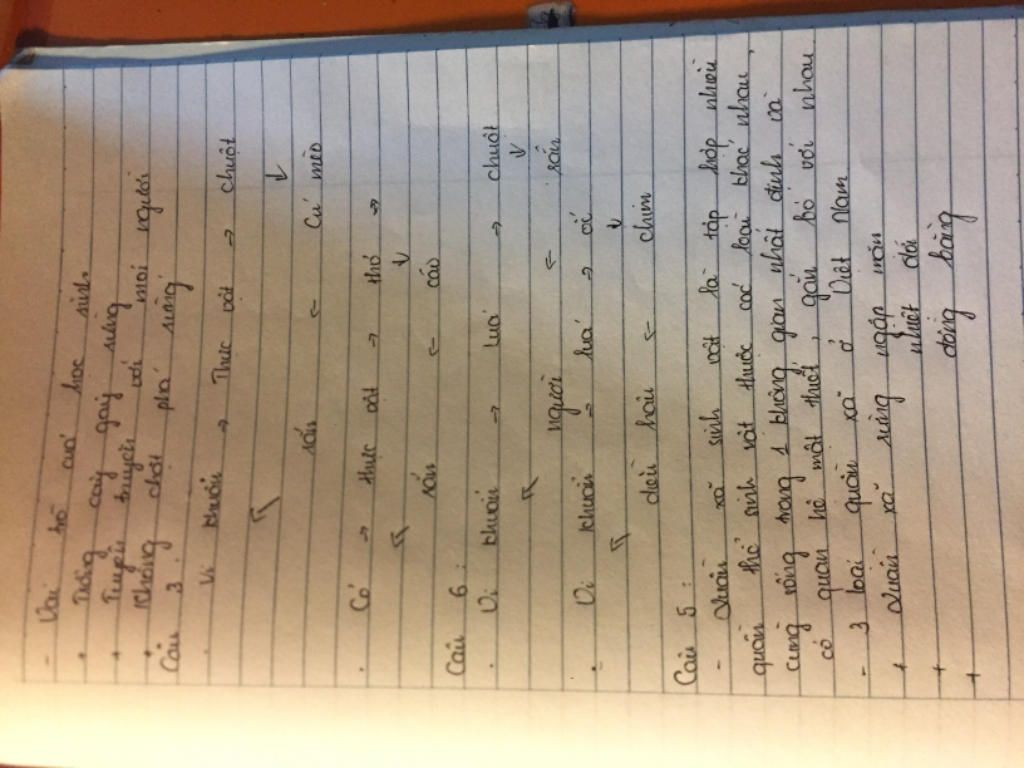 - Vai trò của học sinh
+ Trồng cây gây rừng
+ Tuyên truyền với mọi người
+ Không chặt phá rừng
Câu 3:
. Vi khuẩn → Thực vật → chuột
↖ ↓
rắn ← Cú mèo
. Cỏ → thực vật → thỏ →
↖ ↓
rắn ← cáo
Câu 6:
. Vi khuẩn → lúa → chuột
↖ người ← rắn ↓
. Vi khuẩn → lúa → cá
↖ ↓
diều hâu ← chim
Câu 5:
- Quần xã sinh vật là tập hợp nhiều
quần thể sinh vật thuộc các loài khác nhau,
cùng sống trong 1 không gian nhất định và
có quan hệ mật thiết, gắn bó với nhau
- 3 loài quần xã ở Việt Nam
+ Quần xã rừng ngập mặn
+ nhiệt đới
+ đồng bằng